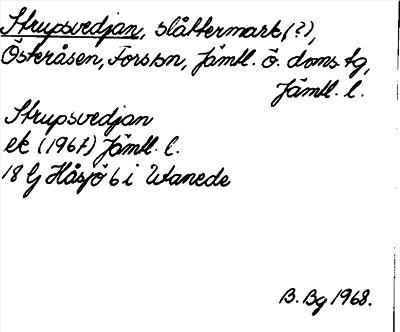 Strupsvedjan, slåttermark(?),
Österåsen, Fors sn, Jämtl. ö. doms. tg,
Jämtl. l.
Strupsvedjan
ek (1967) Jämtl. l.
18 G Håsjö 6 i Utanede
B. Bg 1968.